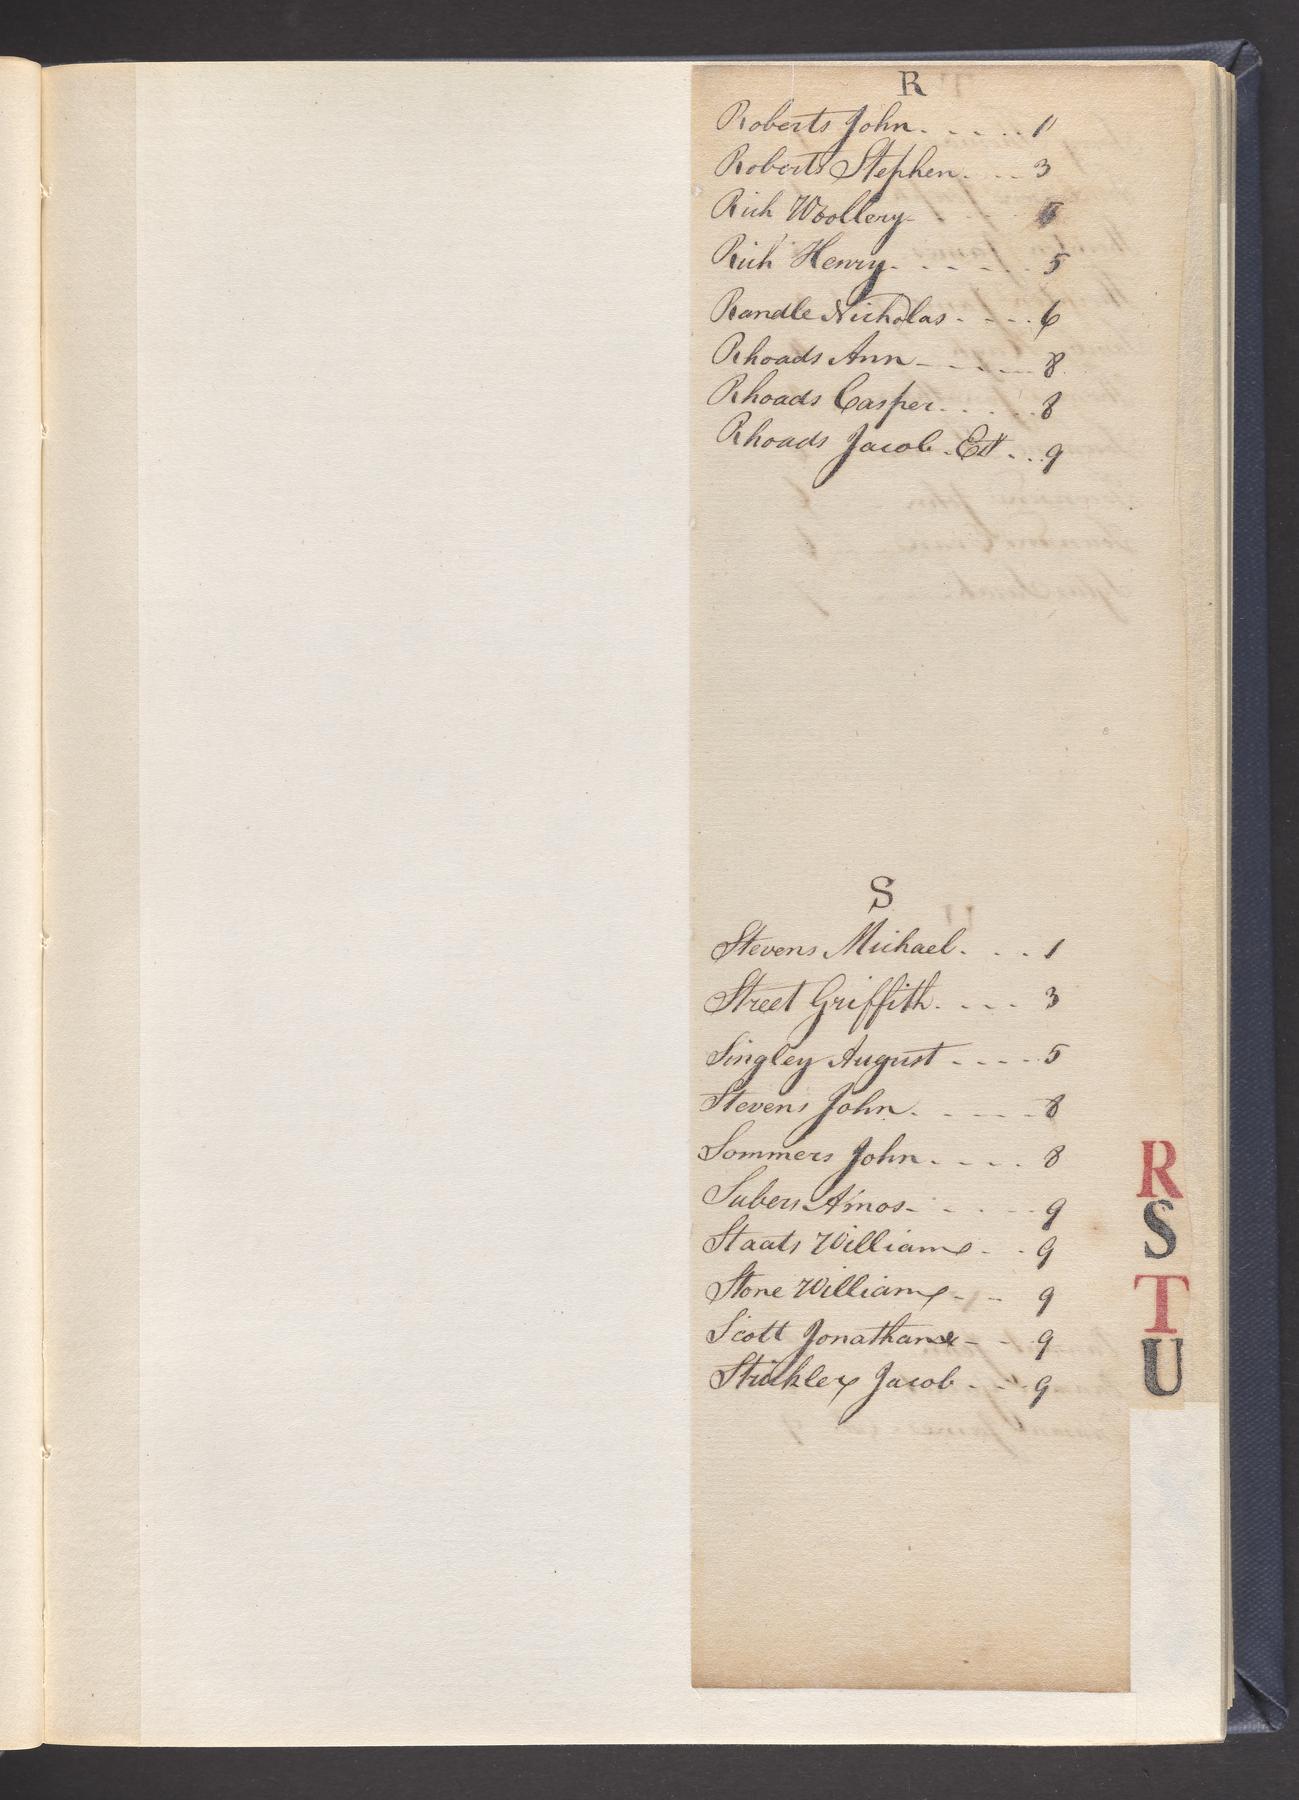 R
Roberts John. - - . . . 1
Roberts Stephen. . - . 3
Rich Woollery- - 5
Rich Henry. - - - . . 5
Randle Nicholas. - - . . 6
Rhoads Ann - - - - - 8
Rhoads Casper. . . . . 8
Rhoads Jacob. Est . . . 9
S
Stevens Michael. . . . 1
Street Griffith. - - - 3
Singley August - - - - 5
Stevens John. - - - - 8
Sommers John. - - - . 8
Subers Amos- - - - - 9
Staats William - . 9
Stone William - - 9
Scott Jonathan - - 9
Strickler Jacob - - . 9
R
S
T
U